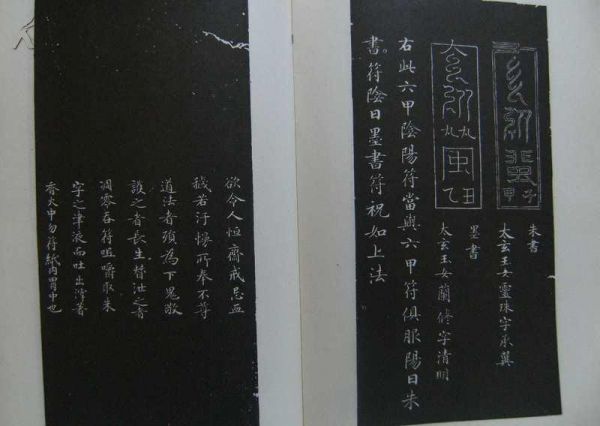 朱書
太玄玉女靈珠字承翼
墨書
太玄玉女蘭修字清明
右此六甲陰陽符當與六甲符俱服陽日朱
書。符陰日墨書符祝如上法
欲令人恒齋戒忌血
穢若汙慢所奉不尊
道法者殞為下鬼敬
護之者長生替泄之者
凋零吞符咀嚼取朱
字之津液而吐出滓著
香火中勿符紙內胃中也